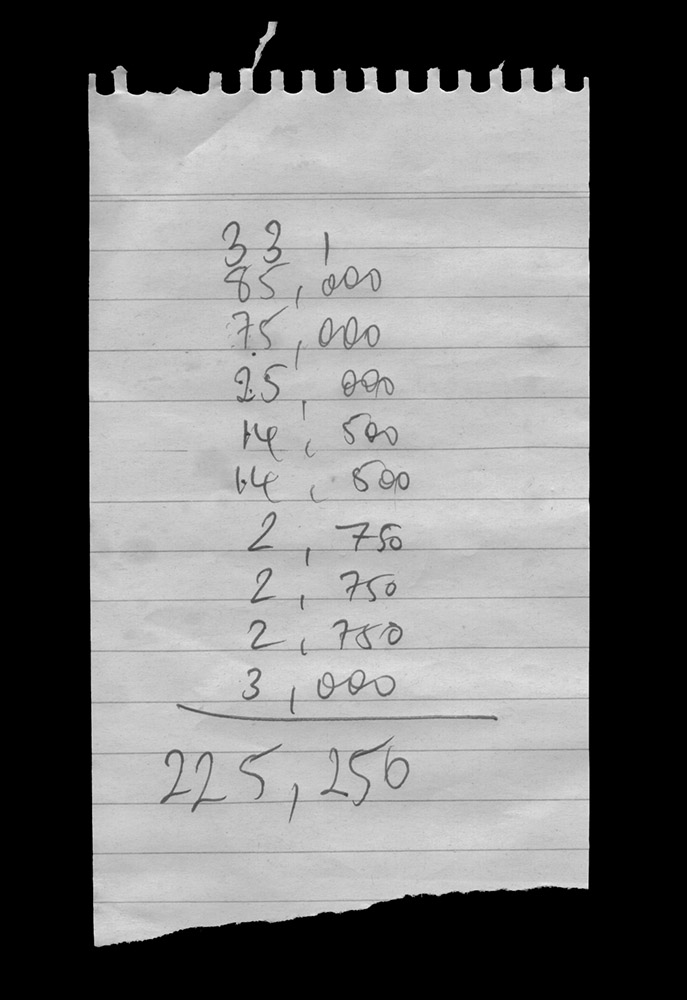 33 1
85,000
75,000
25,000
14,500
14,500
2,750
2,750
2,750
3,000
225,250